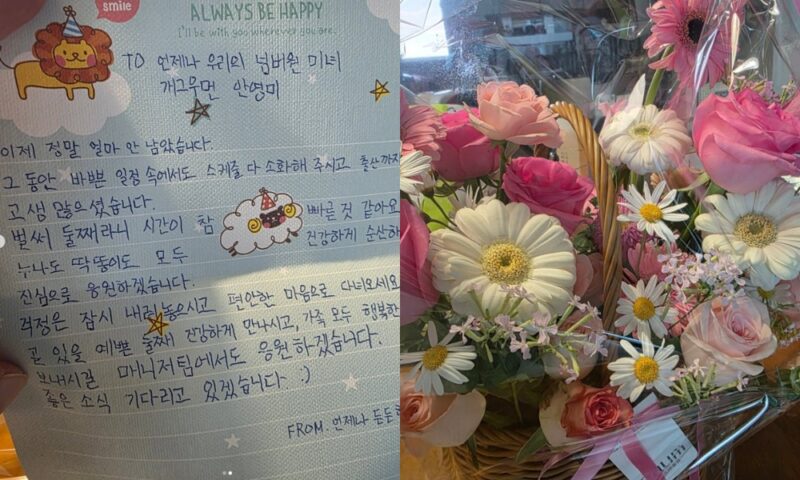 smile
ALWAYS BE HAPPY
I'll be with you wherever you are.
TO 언제나 우리의 넘버원 미녀
개그우먼 안영미
이제 정말 얼마 안 남았습니다.
그 동안 바쁜 일정 속에서도 스케줄 다 소화해 주시고 출산까지
고생 많으셨습니다.
벌써 둘째라니 시간이 참 빠른 것 같아요
누나도 딱똥이도 모두 건강하게 순산하
진심으로 응원하겠습니다.
걱정은 잠시 내려놓으시고 편안한 마음으로 다녀오세요
곧 있을 예쁜 둘째 건강하게 만나시고, 가족 모두 행복한
보내시길 매니저팀에서도 응원하겠습니다.
좋은 소식 기다리고 있겠습니다 :)
FROM. 언제나 든든